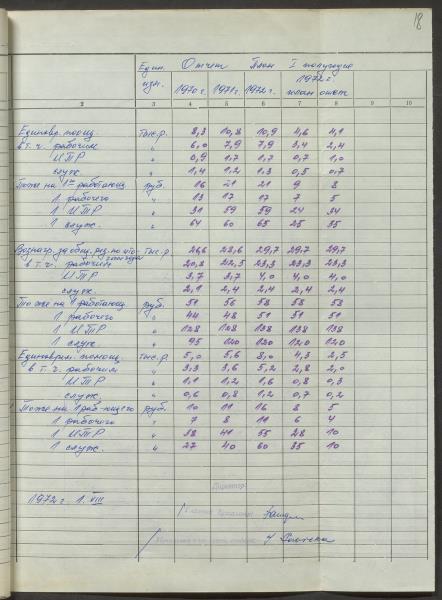 18
Един. изм. Отчет План I полугодие 1972 г.
1970 г. 1971 г. 1972 г. план отчет
2 3 4 5 6 7 8 9 10
Единовр. поощ. тыс.р. 8,3 10,8 10,9 4,6 4,1
в т.ч. рабочим " 6,0 7,9 7,9 3,4 2,4
ИТР " 0,9 1,7 1,7 0,7 1,0
служ. " 1,4 1,2 1,3 0,5 0,7
То же на 1го работающ. руб. 16 21 21 9 8
1 рабочего " 13 17 17 7 5
1 ИТР " 31 59 59 24 34
1 служ. " 64 60 65 25 35
Вознагр. за общ. рез. по итогам года тыс.р. 26,6 28,6 29,7 29,7 29,7
в т.ч. рабочим " 20,8 22,5 23,3 23,3 23,3
ИТР " 3,7 3,7 4,0 4,0 4,0
служ. " 2,1 2,4 2,4 2,4 2,4
То же на 1 работающ. руб. 51 56 58 58 58
1 рабочего " 44 48 51 51 51
1 ИТР " 128 128 138 138 138
1 служ " 95 120 120 120 120
Единоврем. помощ. тыс.р. 5,0 5,6 8,0 4,3 2,5
в т.ч. рабочим " 3,3 3,6 5,2 2,8 2,0
ИТР " 1,1 1,2 1,6 0,8 0,3
служ. " 0,6 0,8 1,2 0,7 0,2
То же на 1 раб-ющего руб. 10 11 16 8 5
1 рабочего " 7 8 11 6 4
1 ИТР " 38 41 55 28 10
1 служ. " 27 40 60 35 10
1972 г. 1. VIII